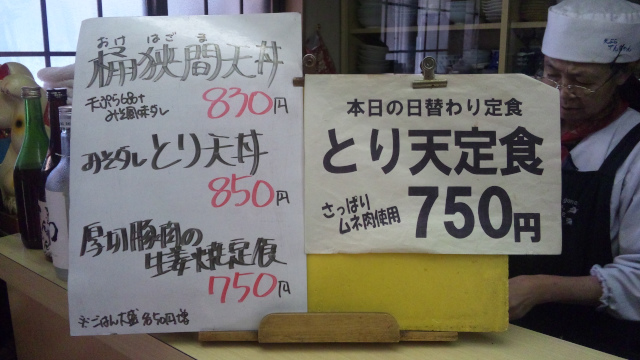 おけ は ざ ま
桶狭間天丼
天ぷら6品+
みそ風味ダレ
830円
みそダレとり天丼
850円
厚切豚肉の
生姜焼定食
750円
本日の日替わり定食
とり天定食
さっぱり
ムネ肉使用
750円